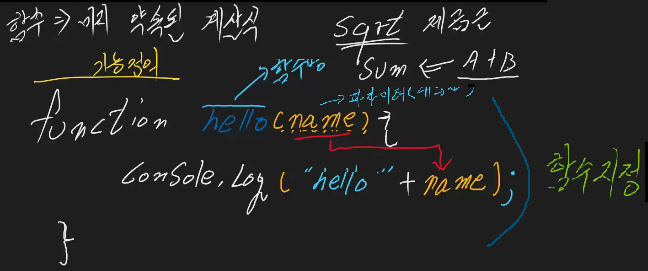 함수 => 미리 약속된 계산식 sqrt 제곱근
기능정의 함수명 sum ← A+B
→ 파라미터(매개변수)
function hello(name) {
console.log("hello" + name); 함수지정
}